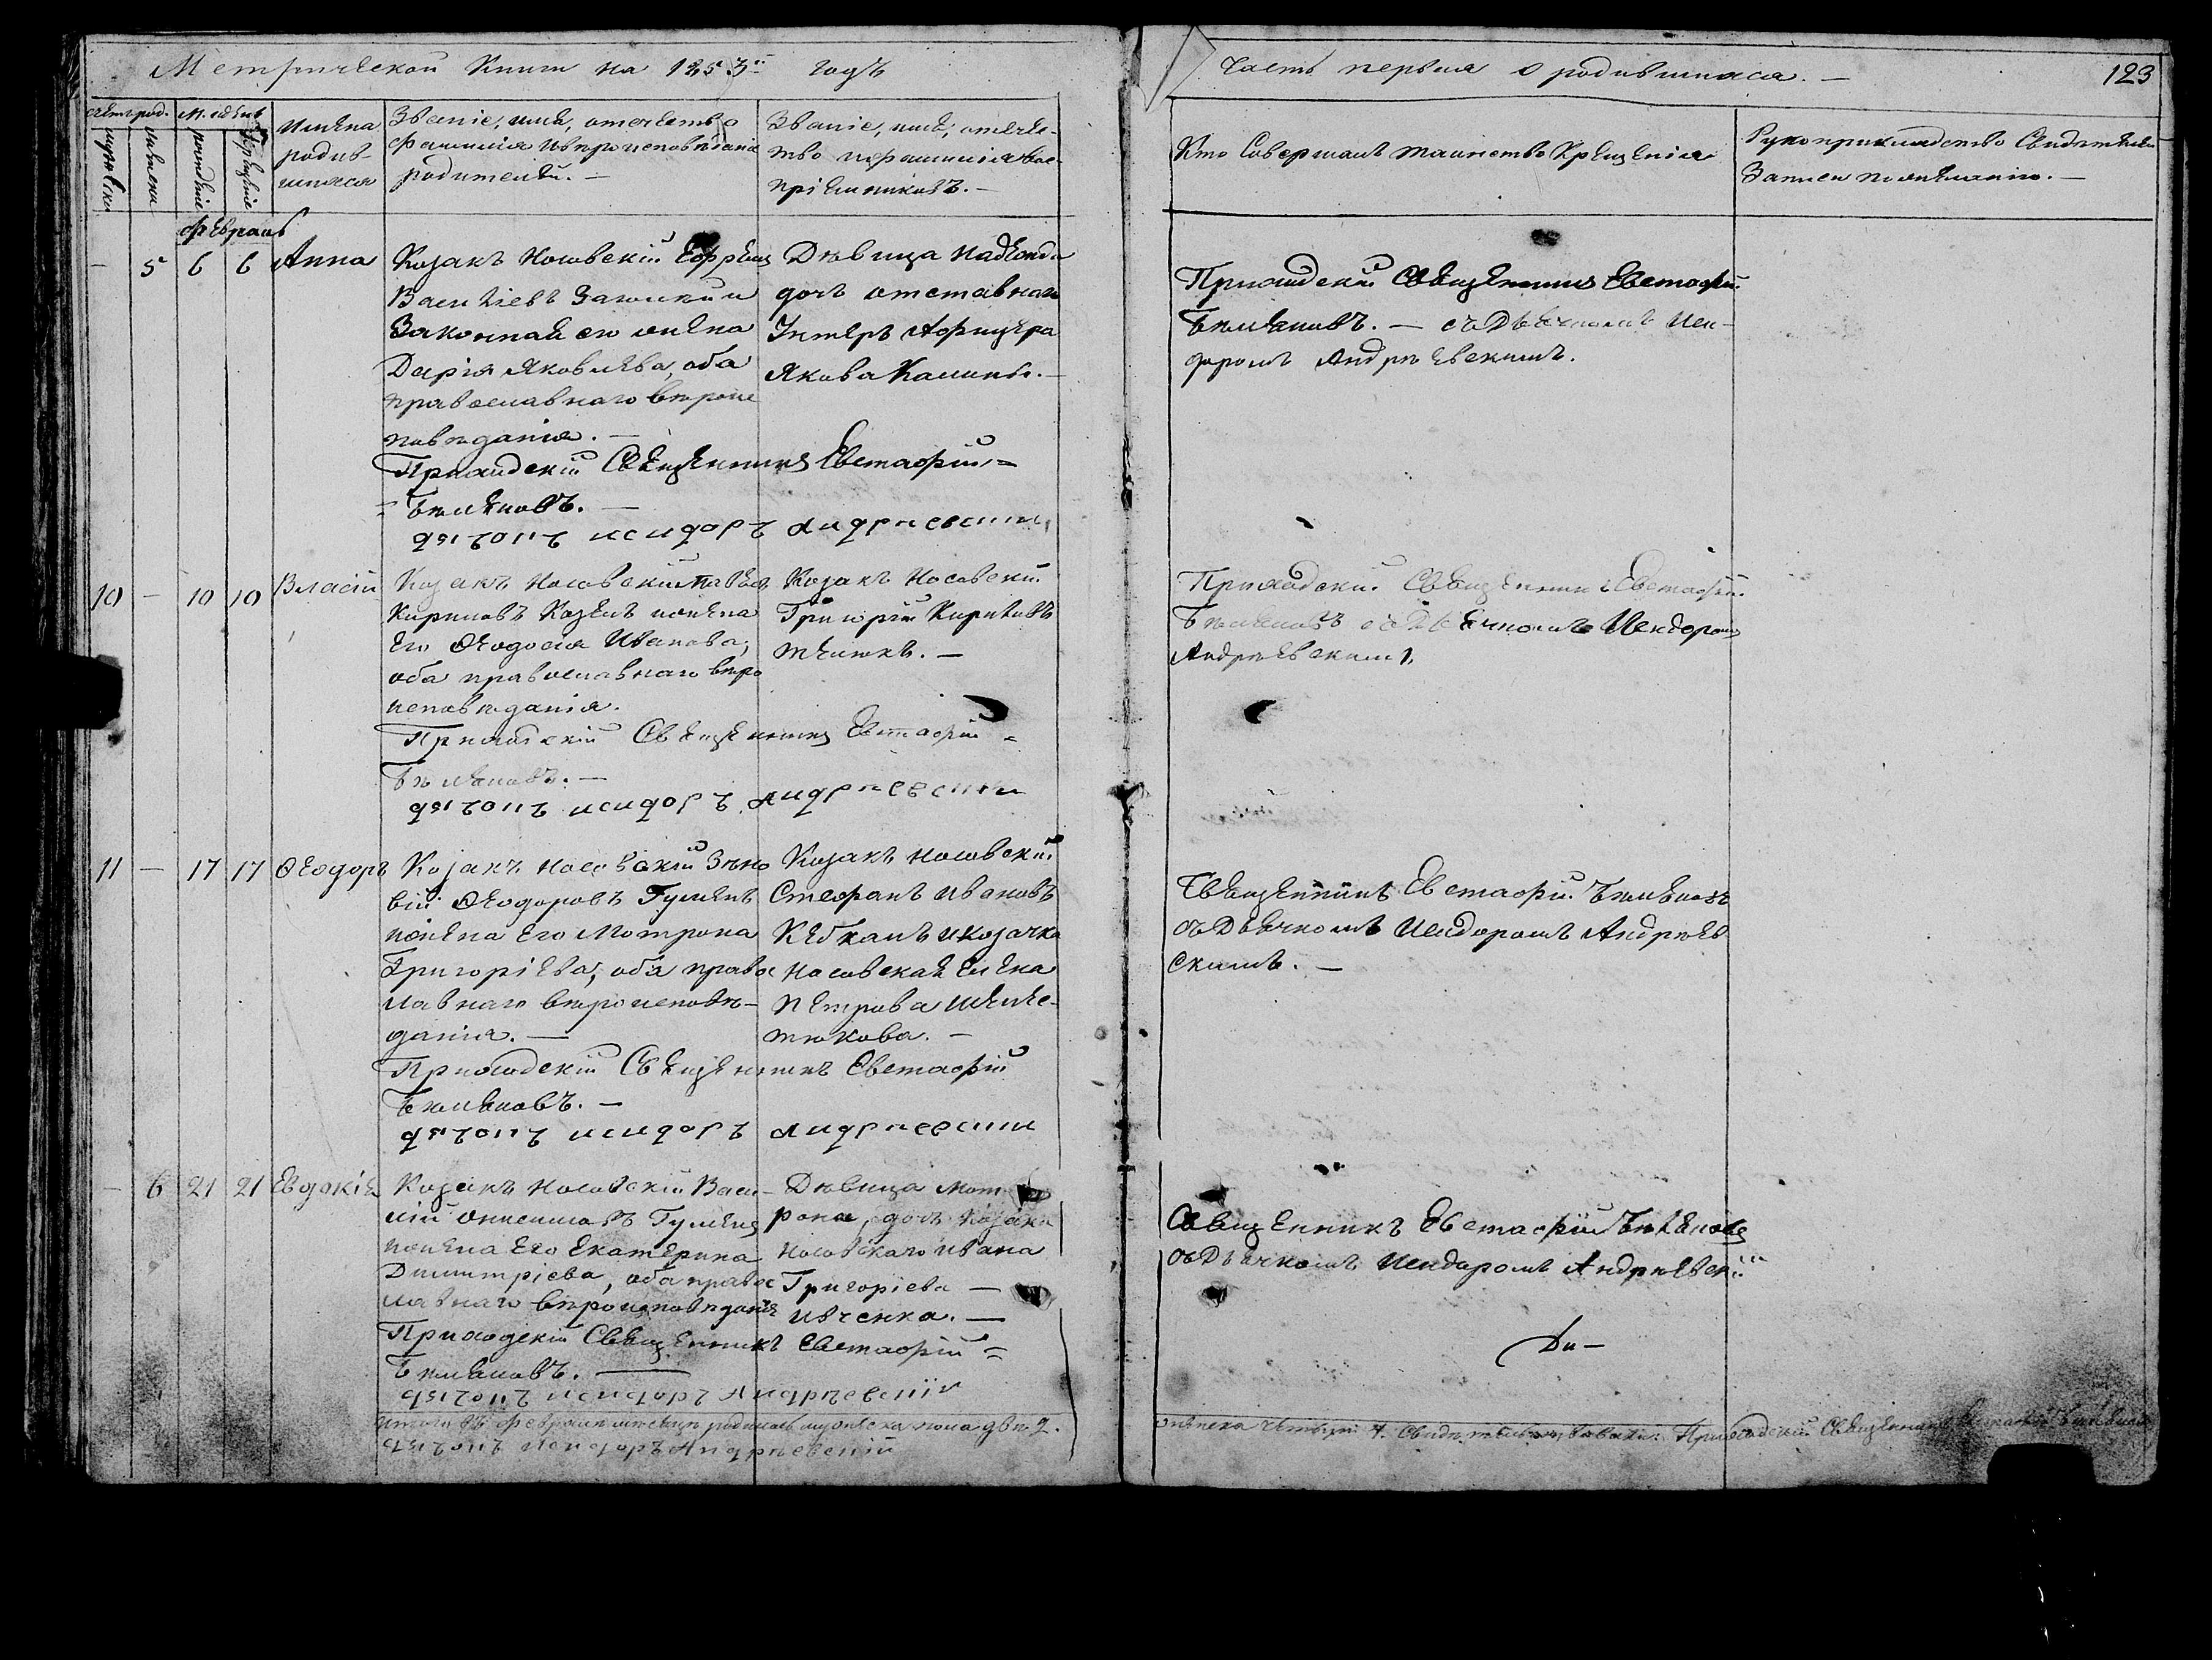 Метрической Книги на 1853й годъ
Часть первая о родившихся. —
123
счетъ род.
М. и день
мужеска
женска
рожденіе
крещеніе
Имена
родив-
шихся
Званіе, имя, отечество
фамилія и вѣроисповѣданіе
родителей. —
Званіе, имя, отече-
тво и фамилія вос-
пріемниковъ. —
Кто Совершалъ таинство Крещенія
Рукоприкладство Свидѣтелей
Записи по желанію. —
Февраль
— 5 6 6 Анна
Козакъ Носовскій Ефремъ
Василіевъ
Законная его жена
Дарія Яковлева, оба
православнаго вѣроис
повѣданія. —
Приходскій Священникъ Евстафій =
= Бѣляновъ. —
дьячокъ исидоръ андріевскій
Дѣвица
дочь отставнаго
Унтеръ Афицера
Якова Калины. —
Приходскій Священникъ Евстафій
Бѣляновъ. — съ Дьячкомъ Иси-
доромъ Андрѣевскимъ.
10 — 10 10 Власій
Козакъ Носовскій Павелъ
Кириловъ Козелъ и жена
Его Феодосія Иванова,
оба православнаго вѣро
исповѣданія.
Приходскій Священникъ Евстафій =
Бѣляновъ. —
дьячокъ исидоръ андріевскій
Козакъ Носовскій
Григорій Кириловъ
Приходскій Священникъ Евстафій
Бѣляновъ съ Дьячкомъ Исидоромъ
Андрѣевскимъ
11 — 17 17 Феодоръ
Козакъ Носовскій Зѣно
вій Феодоровъ Гуменъ
и жена Его Мотрона
Григоріева, оба правос
лавнаго вѣроисповѣ-
данія. —
Приходскій Священникъ Евстафій
Бѣляновъ. —
дьячокъ исидоръ андріевскій
Козакъ Носовскій
Стефанъ Ивановъ
и козачка
Носовская Елена
Петрова Шеме-
тюкова. —
Священникъ Евстафій Бѣляновъ
съ Дьячкомъ Исидоромъ Андрѣев
скимъ. —
— 6 21 21 Евдокія
Козакъ Носовскій Васи-
лій Онисимовъ Гуменъ
и жена Его Екатерина
Димитріева, оба правос
лавнаго вѣроисповѣданія
Приходскій Священникъ Евстафій =
Бѣляновъ. —
дьячокъ исидоръ Андрѣевскій
Дѣвица Мот
рона, дочь Козака
Носовскаго Ивана
Григоріева —
Ивченка. —
Священникъ Евстафій Бѣляновъ
съ Дьячкомъ Исидоромъ Андрѣевскій
Ди —
Итого въ Февралѣ мѣсяцѣ родилось мужеска пола двѣ 2.
женска четыри 4. Приходскій Священникъ Евстафій Бѣляновъ
дьячокъ исидоръ Андрѣевскій